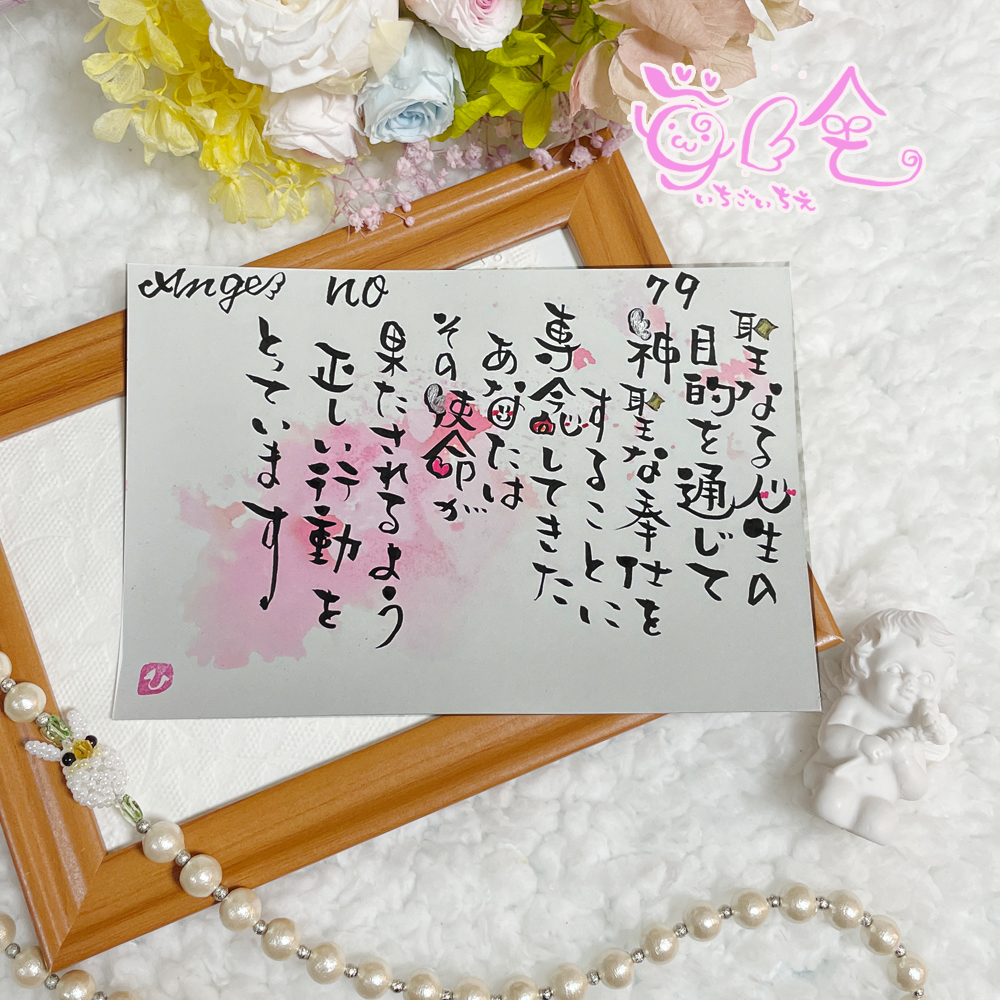 Angel no 79
聖なる人生の
目的を通じて
神聖な奉仕を
することに
専念してきた
あなたは
その使命が
果たされるよう
正しい行動を
とっています
いちごいちえ